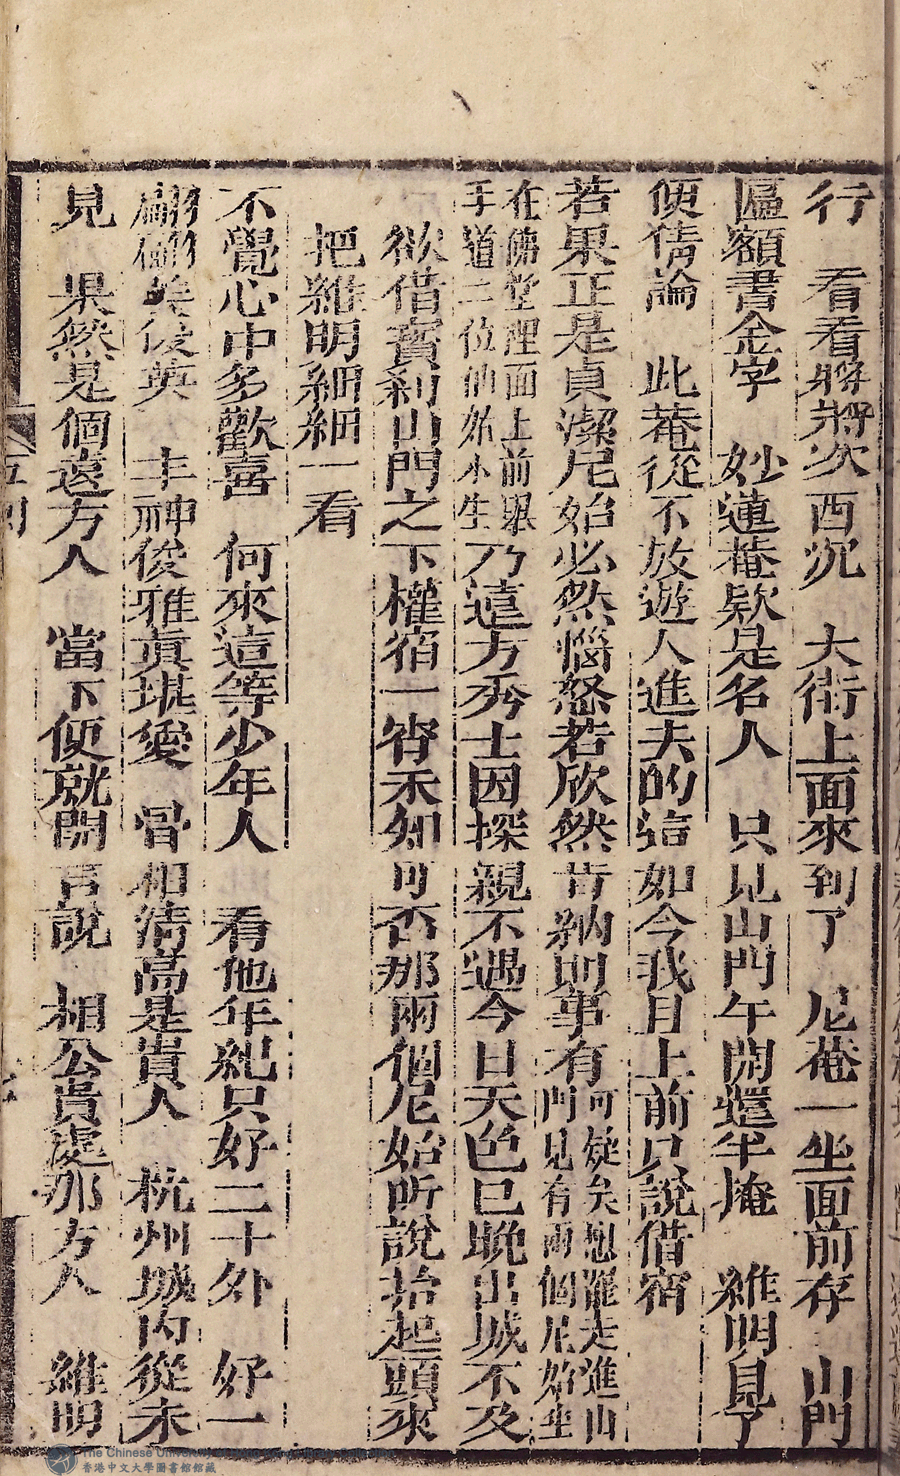 行　看看將將次西沉　大街上面來到了　尼菴一坐面前存　山門
匾額書金字　妙蓮菴欵是名人　只見山門午開還半掩　維明見了
便倩論　此菴從不放遊人進去的這如今我且上前只說借宿
若果正是貞潔尼姑必然惱怒若欣然肯納則事有可疑矣想罷走進山門見有兩個尼姑坐
在佛堂裡面上前舉手道二位仙姑小生乃遠方秀士因探親不遇今日天色已晚出城不及
欲借寳刹山門之下權宿一宵未知可否那兩個尼姑听說抬起頭來
把維明細細一看
不覺心中多歡喜　何來這等少年人　看他年紀只好二十外　好一
翩翩美俊英　丰神俊雅真堪愛　骨相清高是貴人　杭州城內從未
見　果然是個遠方人　當下便就開言說　相公貴處那方人　維明
香港中文大學圖書館館藏